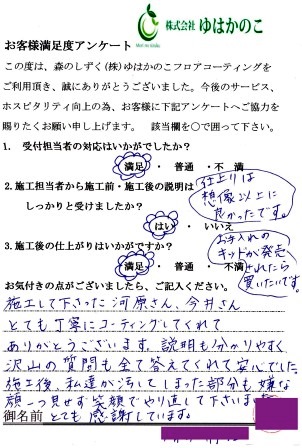 株式会社 ゆはかのこ
お客様満足度アンケート
この度は、森のしずく(株)ゆはかのこフロアコーティングを
ご利用頂き、誠にありがとうございました。今後のサービス、
ホスピタリティ向上の為、お客様に下記アンケートへご協力を
賜りたくお願い申し上げます。 該当欄を○で囲って下さい。
1. 受付担当者の対応はいかがでしたか?
満足 ・ 普通 ・ 不 満
2. 施工担当者から施工前・施工後の説明は
しっかりと受けましたか?
はい ・ いいえ
仕上りは
想像以上に
良かったです。
3. 施工後の仕上がりはいかがですか?
満足 ・ 普通 ・ 不満
お手入れの
キットが発売
されたら
買いたいです。
お気付きの点がございましたら、ご記入ください。
施工して下さった河原さん、今井さん
とても丁寧にコーティングしてくれて
ありがとうございます。説明も分かりやすく
沢山の質問も全て答えてくれて安心でした。
施工後、私達が汚してしまった部分も嫌な
顔一つ見せず笑顔でやり直して下さいました
御名前 とても感謝しています。